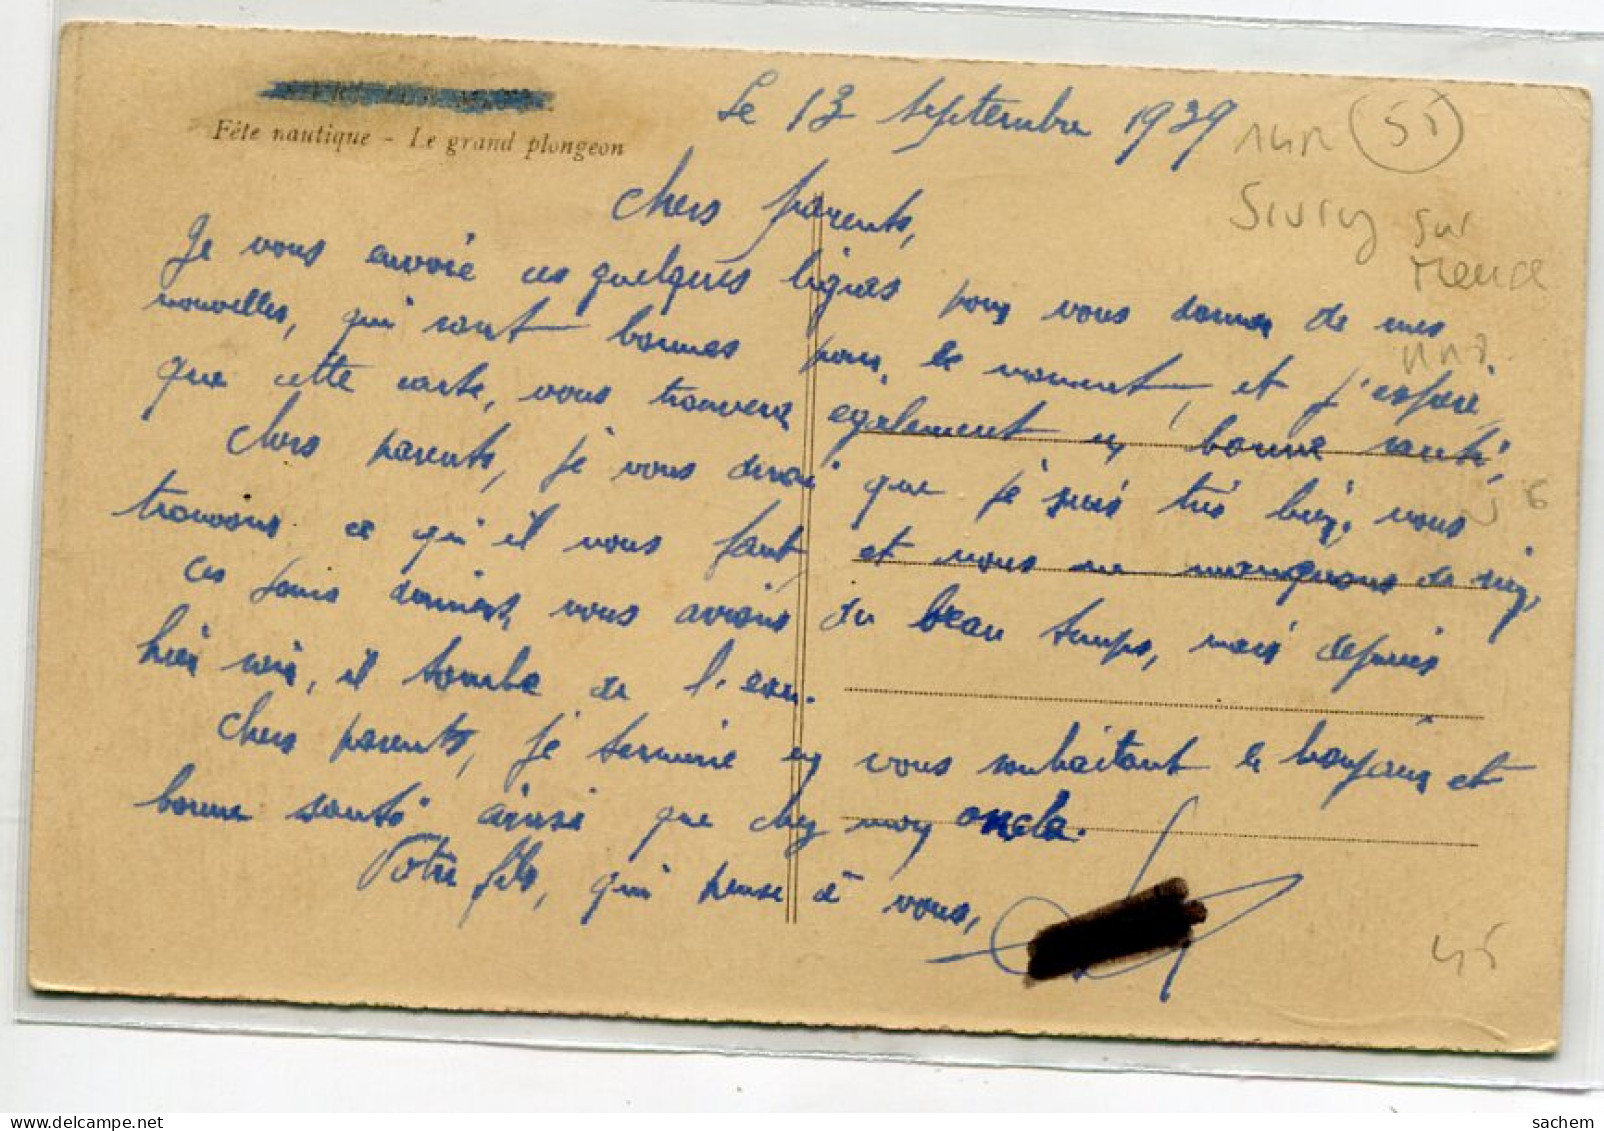 Fête nautique - Le grand plongeon
Le 13 septembre 1939
51
Sivry sur
Meuse
Chers parents,
Je vous envoie ces quelques lignes pour vous donner de mes
nouvelles, qui sont bonnes pour le moment, et j'espère
que cette carte, vous trouvera également en bonne santé,
Chers parents, je vous dirai que je suis très bien, nous
trouvons ce qu'il nous faut, et nous ne manquons de rien,
ces jours derniers, nous avions du beau temps, mais depuis
hier soir, il tombe de l'eau.
Chers parents, je termine en vous souhaitant le bonjour et
bonne santé ainsi que chez mon oncle.
Votre fils, qui pense à vous,
45
sachem